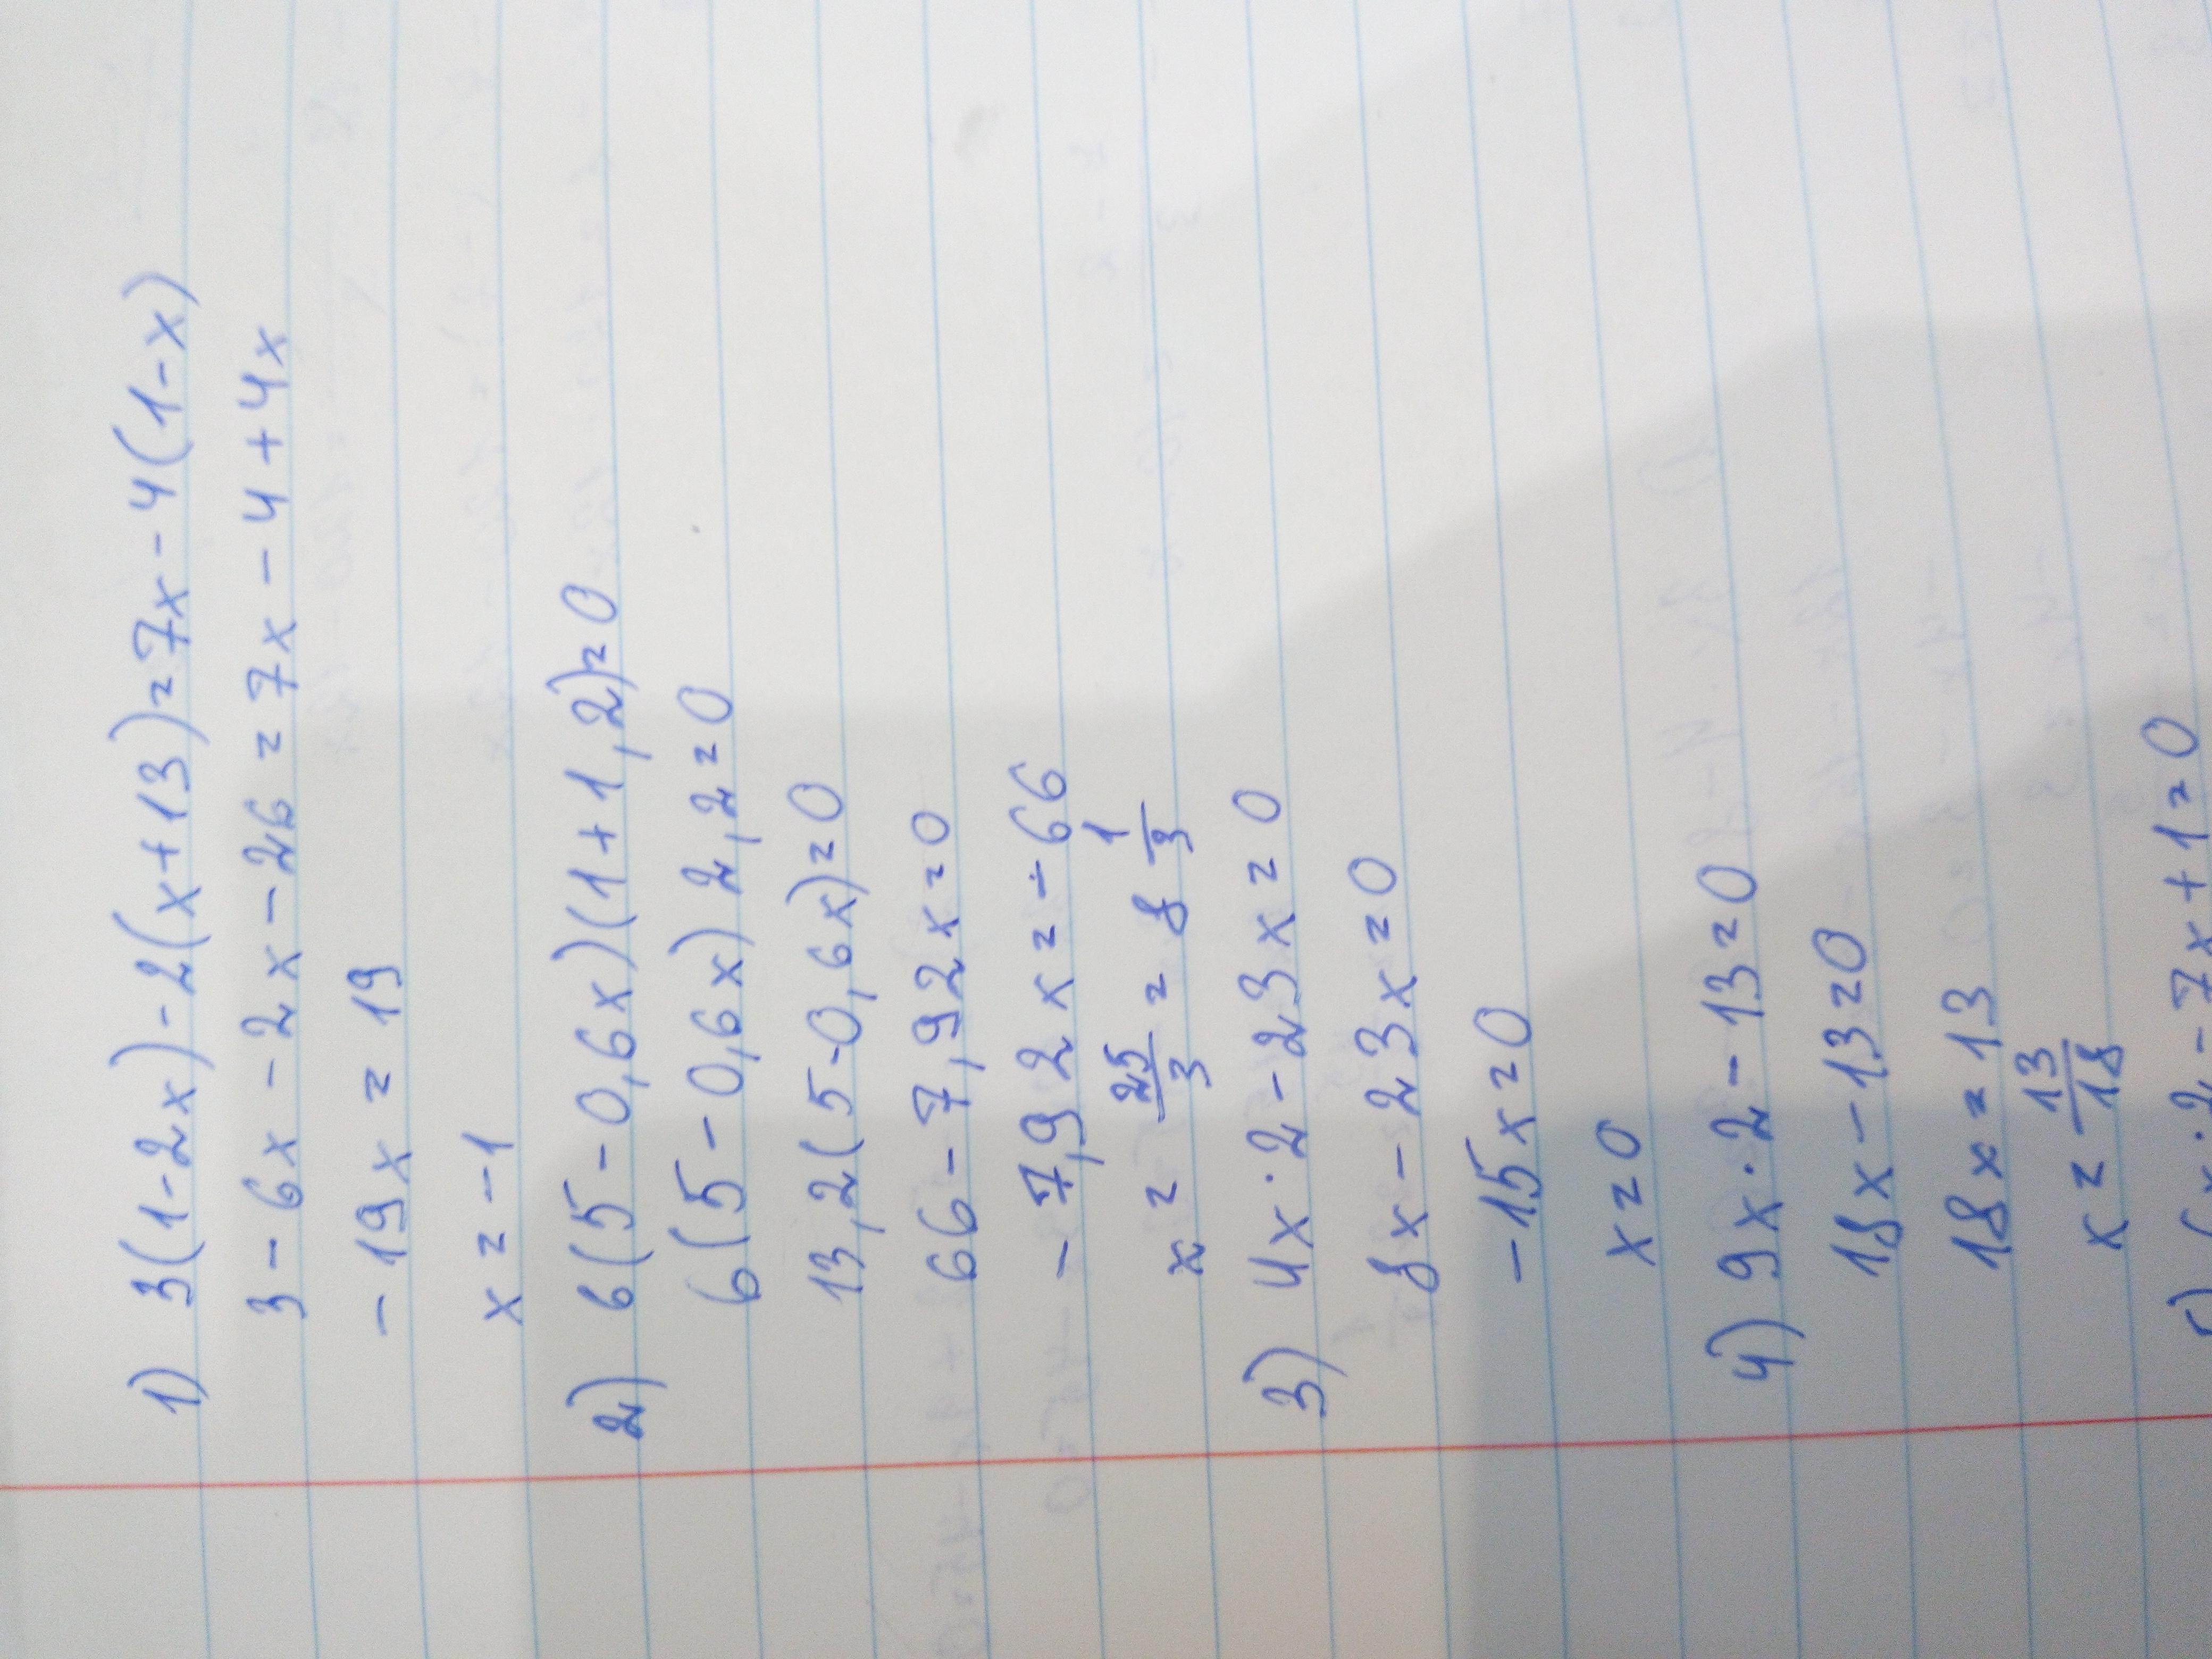 1) 3(1-2x)-2(x+13)=7x-4(1-x)
3-6x-2x-26=7x-4+4x
-19x=19
x=-1
2) 6(5-0,6x)(1+1,2)=0
6(5-0,6x)2,2=0
13,2(5-0,6x)=0
66-7,92x=0
-7,92x=-66
x=25/3=8 1/3
3) 4x·2-23x=0
8x-23x=0
-15x=0
x=0
4) 9x·2-13=0
18x-13=0
18x=13
x=13/18
x·2-7x+1=0